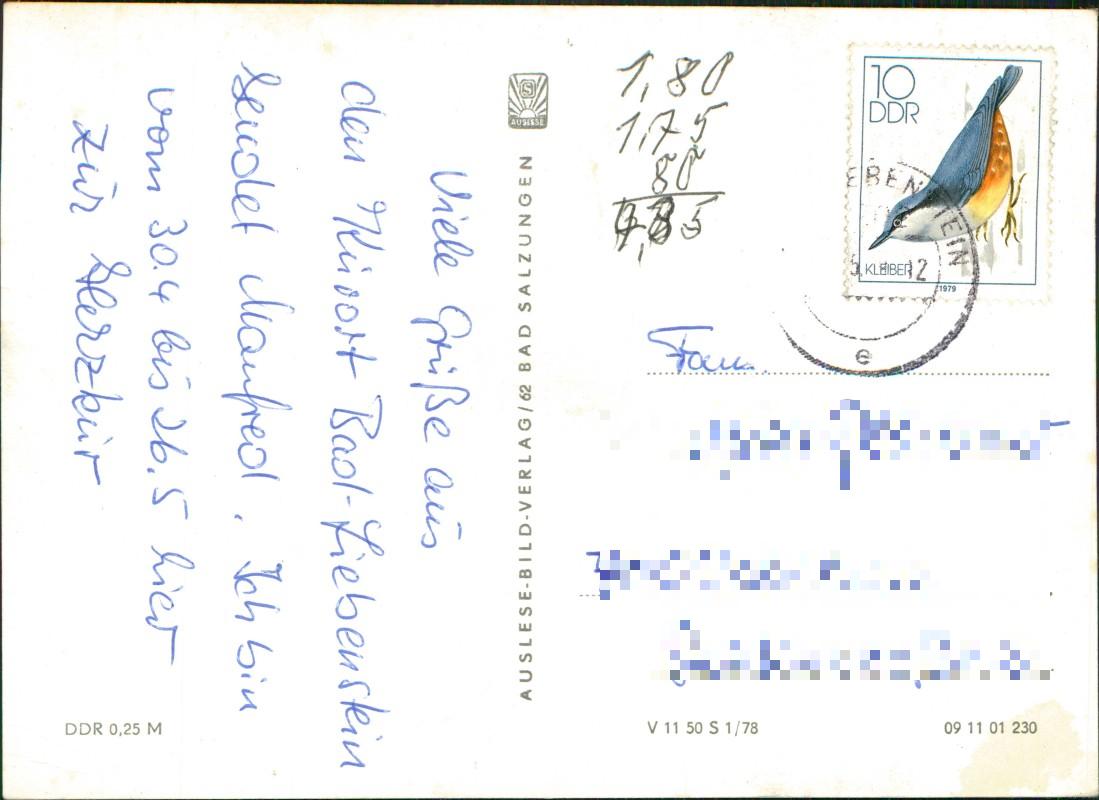 Viele Grüße aus
den Kurort Bad-Liebenstein
sendet Manfred. Ich bin
vom 30.4 bis 26.5 hier
zur Herzkur
AUSLESE
AUSLESE-BILD-VERLAG/62 BAD SALZUNGEN
DDR 0,25 M
1,80
1,75
80
10
DDR
KLEIBER
1979
EBENSTEIN
12
e
Fam.
V 11 50 S 1/78
09 11 01 230